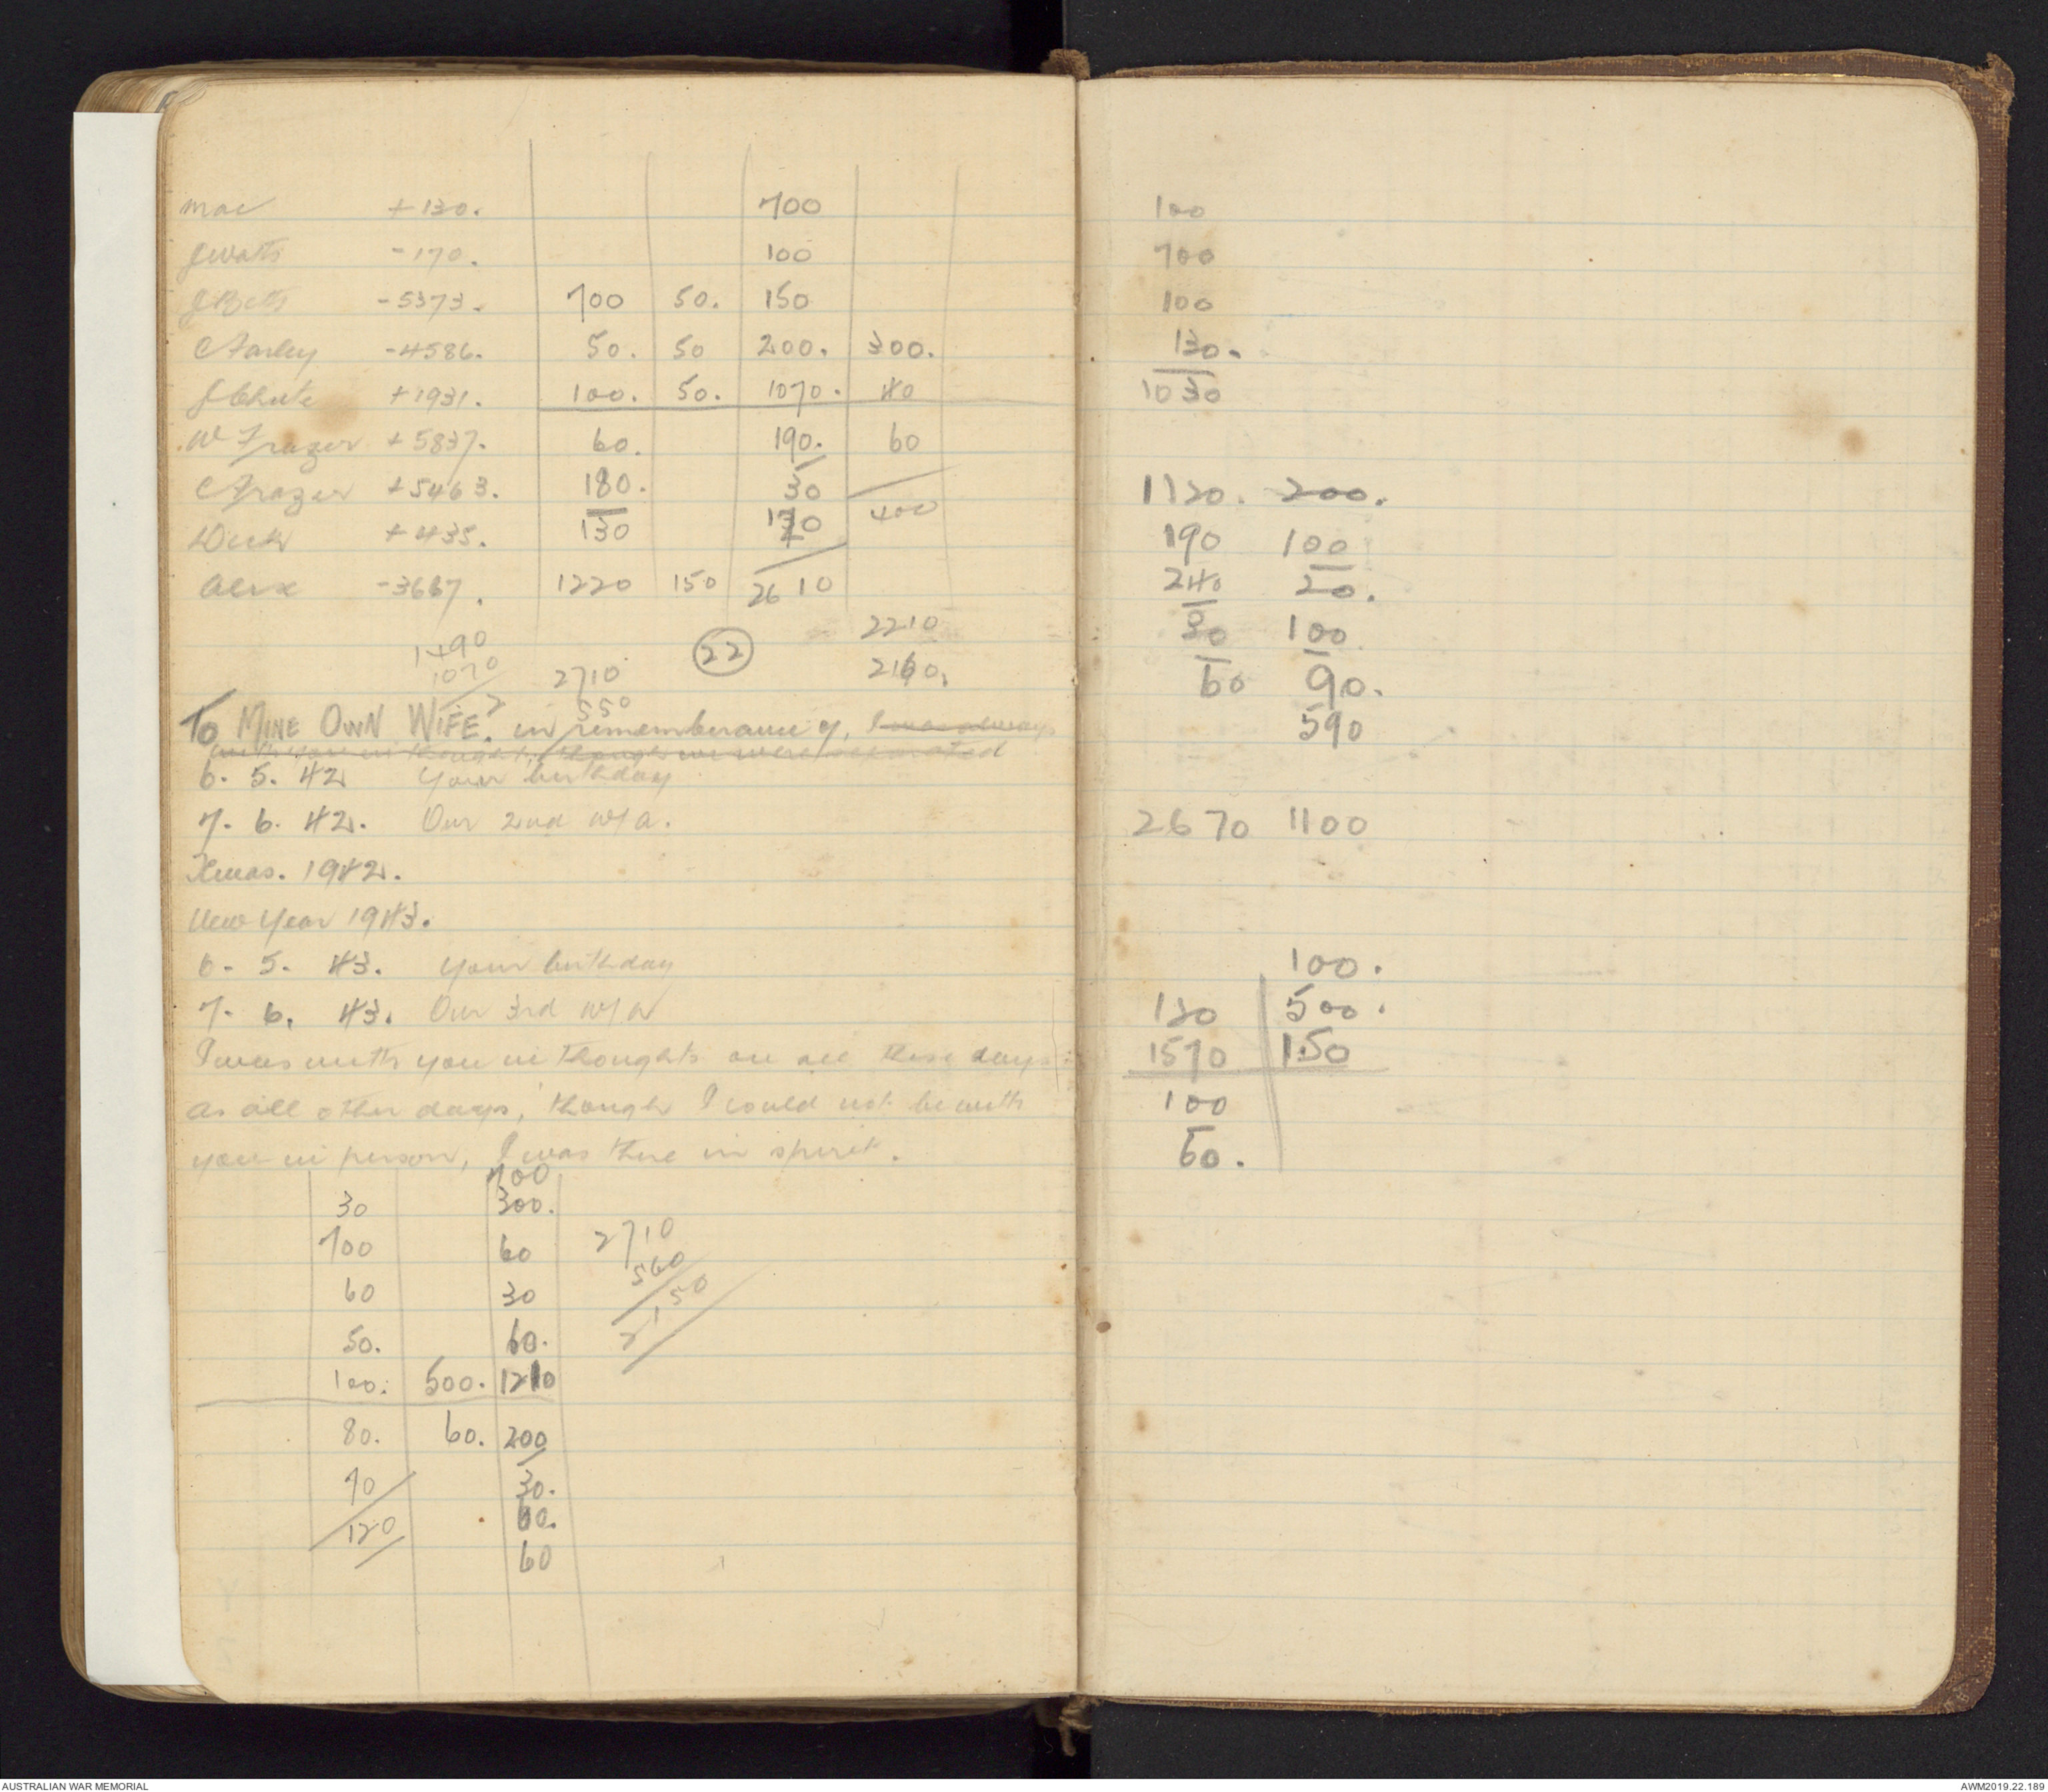 Mac +130. 700
J Watts -170. 100
J Betts -5373. 700 50. 150
C Farley -4586. 50. 50 200. 300.
J Chute +1931. 100. 50. 1070. 40
W Frazer +5837. 60. 190. 60
C Frazer +5463. 180. 30
Dick +435. 130 400
Alex -3667. 1220 150 2610
1490 2210
1070 2710 (22) 2160.
550
To MINE OWN WIFE. in rememberance of, I was always
with you in thought, though we were separated
6. 5. 42 Your birthday
7. 6. 42. Our 2nd W/A.
Xmas. 1942.
New Year 1943.
6. 5. 43. Your birthday
7. 6. 43. Our 3rd W/A
I was with you in thoughts on all these days
as all other days, though I could not be with
you in person, I was there in spirit.
700
30 300.
700 60 2710
60 30 560
50. 60. 2150
100. 500. 1210
80. 60. 200
70 30.
120 60.
60
100
700
100
130.
1030
1120. 200.
190 100
240 20.
30 100
60 90.
590
2670 1100
100.
130 500.
1570 150
100
60.
AUSTRALIAN WAR MEMORIAL AWM2019.22.189